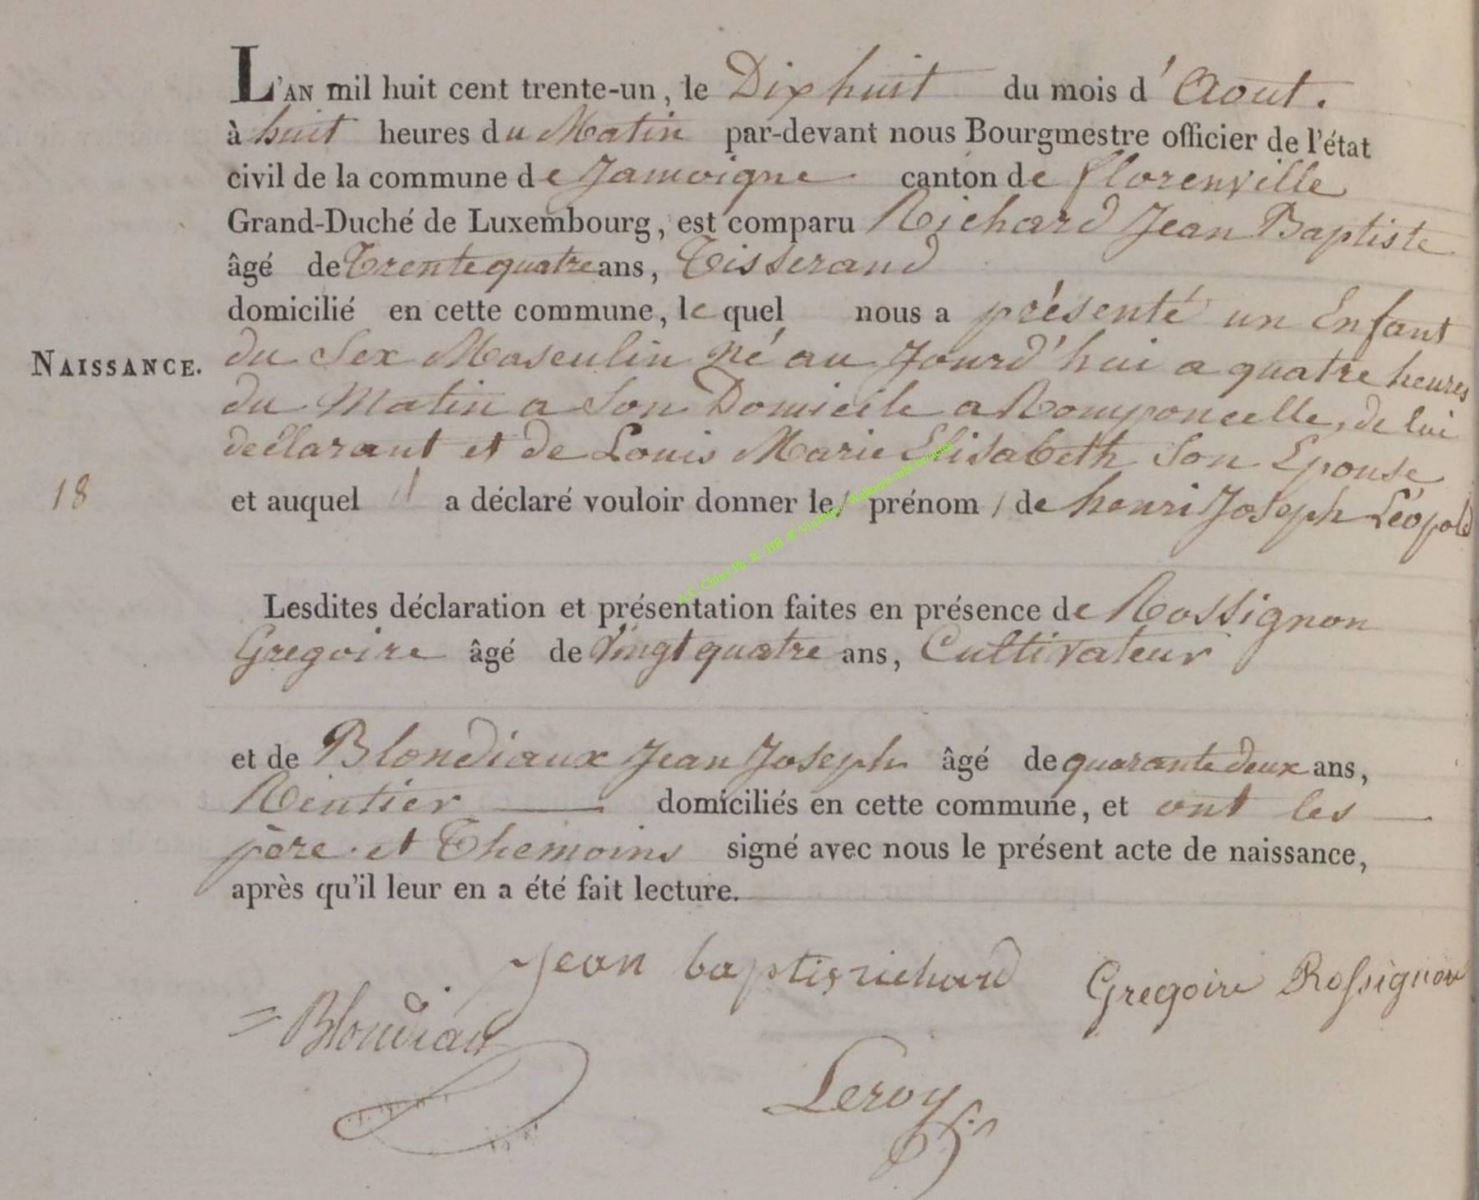 L'AN mil huit cent trente-un, le Dix huit du mois d'Aout.
à huit heures du Matin par-devant nous Bourgmestre officier de l'état
civil de la commune de Jamoigne canton de florenville
Grand-Duché de Luxembourg, est comparu Richard Jean Baptiste
âgé de Trente quatre ans, Tisserand
domicilié en cette commune, le quel nous a présenté un Enfant
NAISSANCE.
du Sex Masculin né au Jourd'hui a quatre heures
du Matin a Son Domicile a Romponcelle, de lui
declarant et de Louis Marie Elisabeth Son Epouse
18
et auquel il a déclaré vouloir donner le/ prénom / de henri Joseph Léopold
Lesdites déclaration et présentation faites en présence de Rossignon
Gregoire âgé de Vingt quatre ans, Cultivateur
et de Blondiaux Jean Joseph âgé de quarante deux ans,
Rentier domiciliés en cette commune, et ont les
père et Themoins signé avec nous le présent acte de naissance,
après qu'il leur en a été fait lecture.
Jean baptis richard
Gregoire Rossignon
Blondiau
Leroy